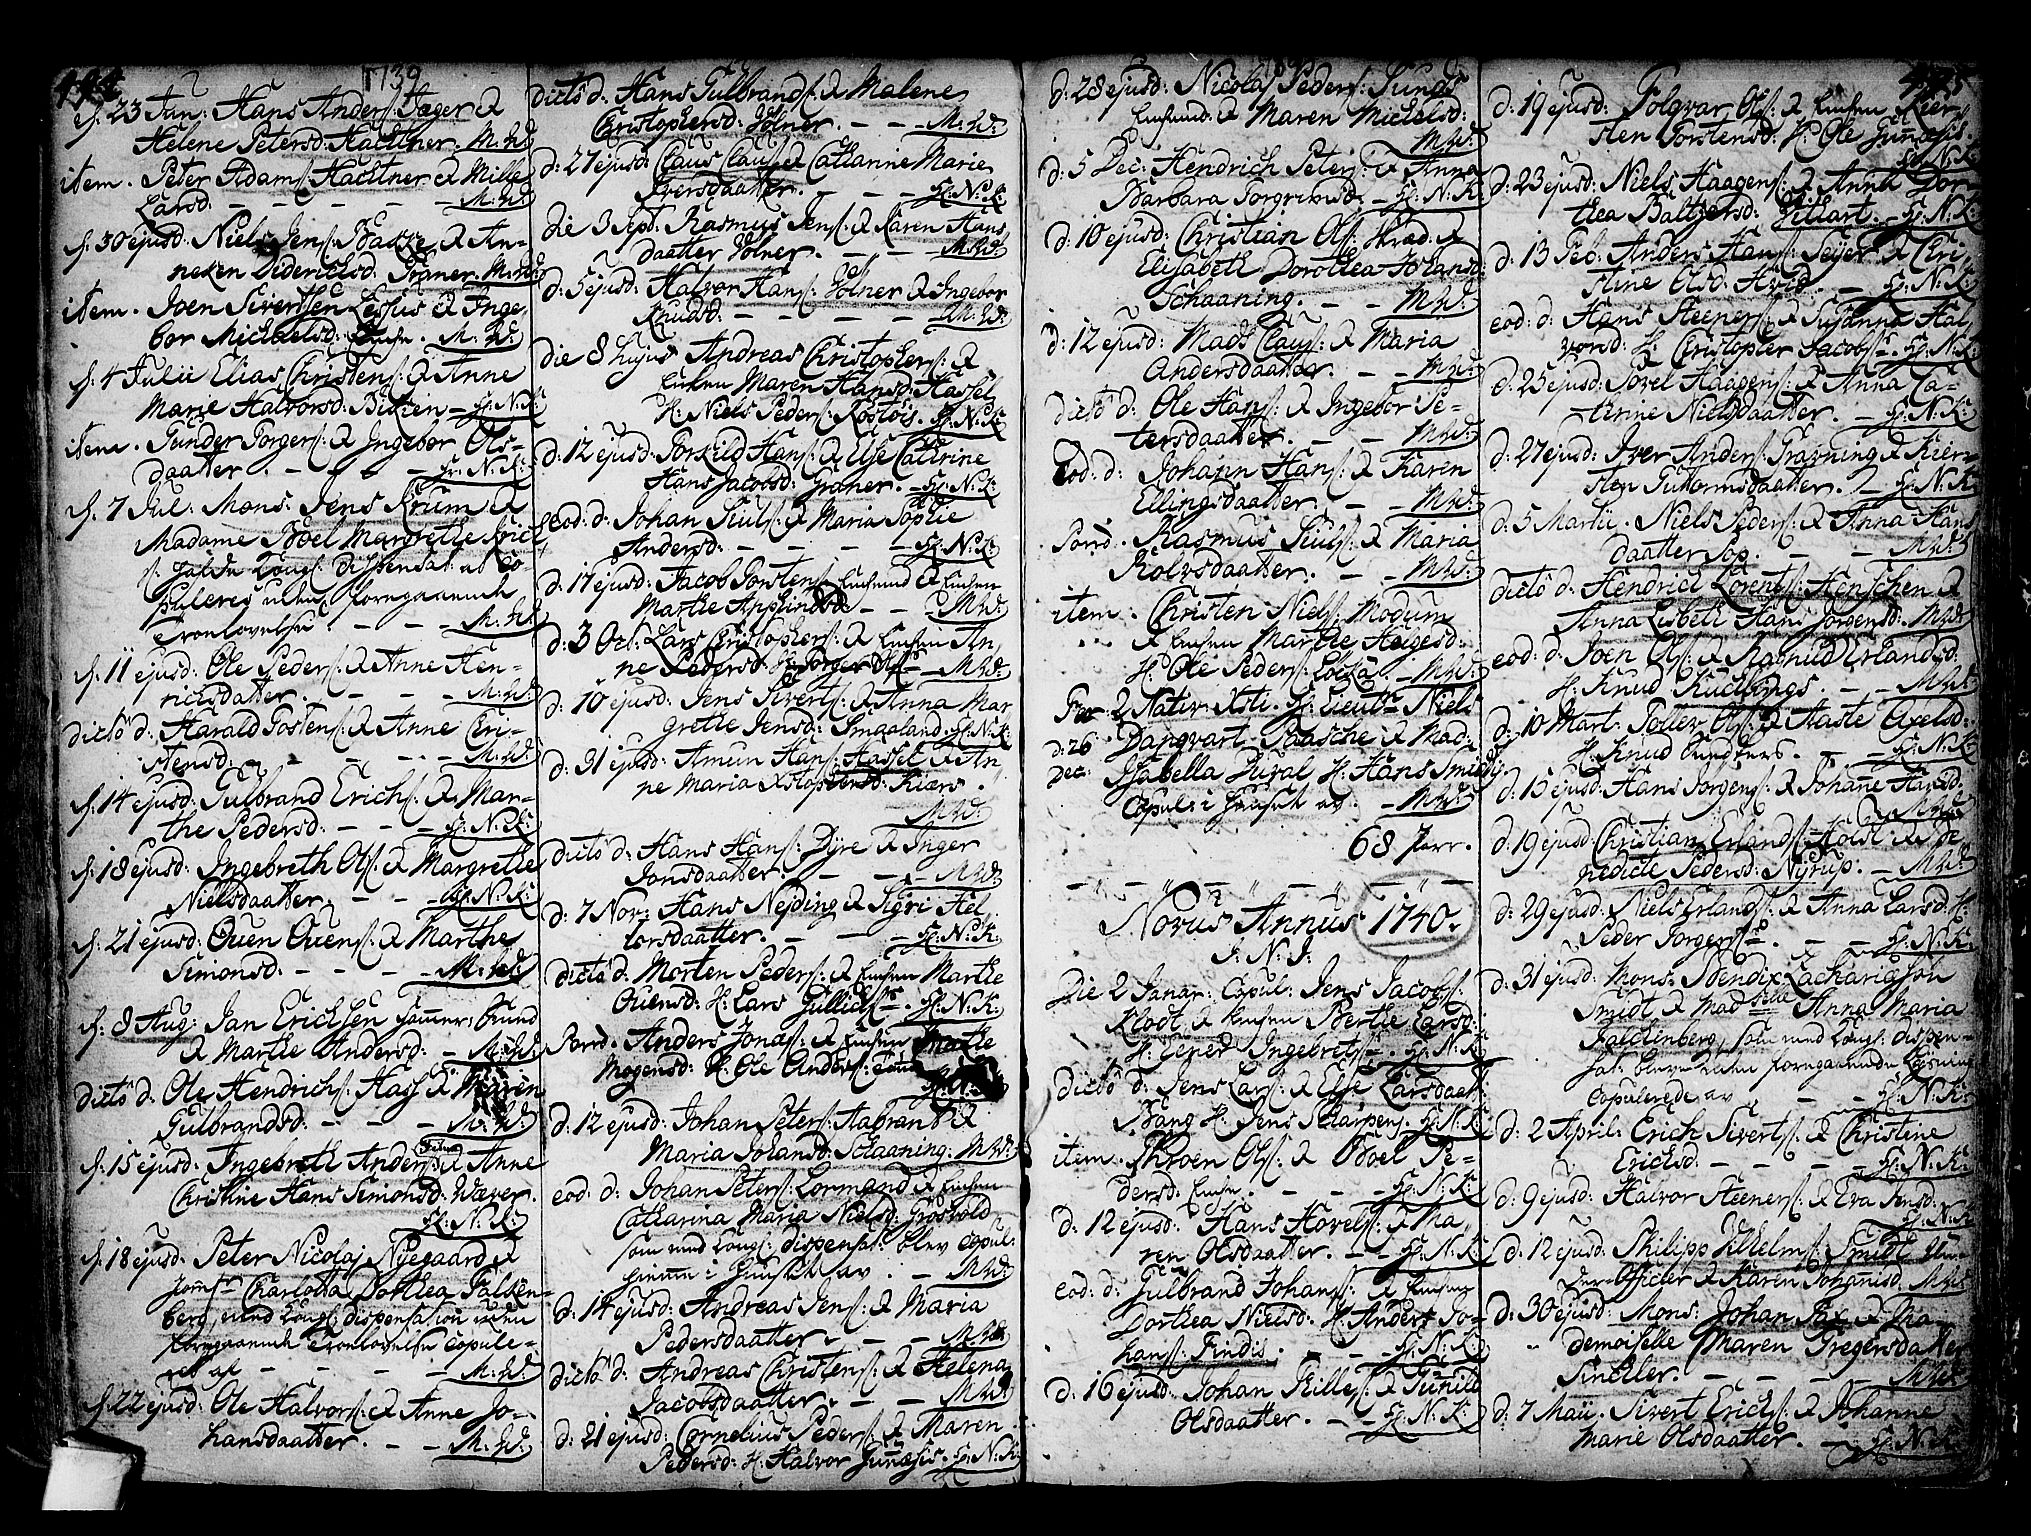 444
1739
d. 23 Jun: Hans Anders: Jæger &
Helene Petersd: Hachtner. M: W:
item. Peter Adams: Hachtner & Mille
Larsd: M: W:
d. 30 ejusd: Niels Jens: & An-
neken Diderichsd: Graner. M: W:
item. Joen Sivertsen & Inge-
bor Michelsd: M: W:
d. 4 Julii Elias Christens: & Anne
Marie Halvorsd: H: N: K:
item. Gunder Torgers: & Ingebor Ols-
daatter. H: N: K:
d. 7 Jul: Mons: Jens Krum &
Madame Boel Margrethe
dispensat: at Co-
puleres uden foregaaende
Troelovelse. M: W:
d. 11 ejusd: Ole Peders: & Anne Hen-
richsdaatter. M: W:
dicto d: Harald Tostens: & Anne Chri-
stensd: M: W:
d. 14 ejusd: Gulbrand Erichs: & Mar-
the Pedersd: H: N: K:
d. 18 ejusd: Ingebreth Ols: & Margrethe
Nielsdaatter. H: N: K:
d. 21 ejusd: Ouen Ouens: & Marthe
Simonsd: M: W:
d. 8 Aug: Jan Erichsen
& Marthe Andersd: M: W:
dicto d: Ole Hendrichs: & Maren
Gulbrandsd: M: W:
d. 15 ejusd: Ingebreth Anders: & Anne
Christine Hans Simonsd: Wæver.
H: N: K:
d. 18 ejusd: Peter Nicolaj Nyegaard &
Charlotta Dorthea Falken-
berg, med Kongl: dispensation uden
foregaaende Troelovelse copule-
ret af M: W:
d. 22 ejusd: Ole Halvors: & Anne Jo-
hansdaatter. M: W:
dicto d: Hans Gulbrands: & Malene
Christophersd: Holner. M: W:
d: 27 ejusd: Claus Claus: & Catharine Marie
Iversdaatter. H: N: K:
die 3 Sept. Rasmus Jens: & Karen Hans
daatter Holner. M: W:
d: 5 ejusd: Halvor Hans: Holner & Ingebor
Knudsd: M: W:
die 8 hujus Andreas Christophers: &
Enken Maren Hansd: Hassel
H: Niels Peders: H: N: K:
d: 12 ejusd: Torkild Hans: & Else Cathrine
Hans Jacobsd: Graner. H: N: K:
eod: d: Johan Siuls: & Maria Sophie
Andersd: H: N: K:
d: 17 ejusd: Jacob Torstens: Enkemand & Enken
Marthe M: W:
d: 3 Oct: Lars Christophers: & Enken An-
ne Pedersd: H: Torger Ols: M: W:
d: 10 ejusd: Jens Siverts: & Anna Mar-
grethe Jensd: Smaaland. H: N: K:
d: 31 ejusd: Amun Hans: Hassel & An-
ne Maria Xstophersd: Kiærs.
M: W:
dicto d: Hans Hans: Dyre & Inger
Jonsdaatter. M: W:
d: 7 Nov: Hans Nejding & Sigri Hel-
lorsdaatter. H: N: K:
dicto d: Morten Peders: & Enken Marthe
Ouensd: H: Lars Gullichs: H: N: K:
Anders Jonas: & Enken Marthe
Mogensd: H: Ole Anders:
H: N: K:
d: 12 ejusd: Johan Peters: Aabrandt &
Maria Johansd: Schaaning. M: W:
eod: d: Johan Peters: Lormand & Enken
Catharina Maria Nielsd: Grosvold
som med Kongl: dispensat: blev copul:
hiemme i Huuset av M: W:
d: 14 ejusd: Andreas Jens: & Maria
Pedersdaatter. M: W:
dicto d: Andreas Christens: & Helena
Jacobsdaatter. M: W:
d: 21 ejusd: Cornelius Peders: & Maren
Pedersd: H: Halvor H: N: K:
d: 28 ejusd: Nicolaj Peders:
Enkemand & Maren Michelsd:
M: W:
d: 5 Dec: Hendrich Peters: & Anna
Barbara Torgrimsd: H: N: K:
d: 10 ejusd: Christian Ols: &
Elisabeth Dorothea Johansd:
Schaaning. M: W:
d: 12 ejusd: Mads Claus: & Maria
Andersdaatter. M: W:
dicto d: Ole Hans: & Ingebor Pe-
tersdaatter. M: W:
Eod: d: Johann Hans: & Karen
Ellingsdaatter. M: W:
Rasmus Siuls: & Maria
Rolvsdaatter. M: W:
item. Christen Niels: Modum
& Enken Marthe Helgesd:
H: Ole Peders: M: W:
2 Nativ: Xsti. H: Lieutn Niels
d: 26 Danqvart Paasche & Mad:
Dec: Isabella H: Hans Smidts,
Copul: i Huuset av. M: W:
68 Parr.
Novus Annus 1740.
I. N. I.
Die 2 Janar: Copul: Jens Jacobs:
Klodt & Enken Berthe Larsd:
H: Ingebrets: H: N: K:
Dicto d: Jens Lars: & Else Larsdaatt:
Bang H: Jens H: N: K:
item. Ols: & Boel Pe-
dersd: Enke. H: N: K:
d: 12 ejusd: Hans Hovels: & Ma-
ren Olsdaatter. H: N: K:
eod: d: Gulbrand Johans: & Enken
Dorthea Nielsd: H: Anders Jo-
hans: Findis. H: N: K:
d: 16 ejusd: Johan & Gunild
Olsdaatter. H: N: K:
445
d: 19 ejusd: Folqvar Ols: & Enken Kier-
sten Torstensd: H: Ole
H: N: K:
d: 23 ejusd: Niels Haagens: & Anna Doro-
thea Baltzersd: H: N: K:
d: 13 Feb: Anders Hans: Sejer & Chri-
stine Olsd: Hvid. H: N: K:
eod: d: Hans Steeners: & Susanna Hal-
vorsd: H: Christopher Jacobs: H: N: K:
d: 25 ejusd: Povel Haagens: & Anna Ca-
thrine Nielsdaatter. H: N: K:
d: 27 ejusd: Iver Anders: & Kier-
sten Guttormsdaatter. H: N: K:
d: 5 Martii. Niels Peders: & Anna Hans
daatter Sop. M: W:
dicto d: Hendrich Lorents: Henschen &
Anna Lisbeth Hans Jorgensd: M: W:
eod: d: Joen Ols: & Ragnild Erlandsd:
H: Knud M: W:
d: 10 Mart: Tollev Ols: & Aaste Axelsd:
H: Knud H: N: K:
d: 15 ejusd: Hans Jorgens: & Johanne Hansd:
M: W:
d: 19 ejusd: Christian Erlands: Holst & Be-
nedicte Pedersd: Nyrup. M: W:
d: 29 ejusd: Niels Erlands: & Anna Larsd: H:
Peder Torgers: H: N: K:
d: 31 ejusd: Mons: Bendix Zachariæson
Smidt & Madselle Anna Maria
Falchenberg, som med Kongl: dispen-
sat: bleve uden foregaaende Lysning
copulerede av H: N: K:
d: 2 April: Erich Siverts: & Christine
Erichsd: H: N: K:
d: 9 ejusd: Halvor Steeners: & Eva Jensd:
H: N: K:
d: 12 ejusd: Philipp Vilhelms: Smidt Un-
der-Officier & Karen Johansd: M: W:
d: 30 ejusd: Mons: Johan Sax & Ma-
demoiselle Maren Gregersdatter
Sindler. M: W:
d: 7 Maii. Sivert Erichs: & Johanne
Marie Olsdaatter. H: N: K: